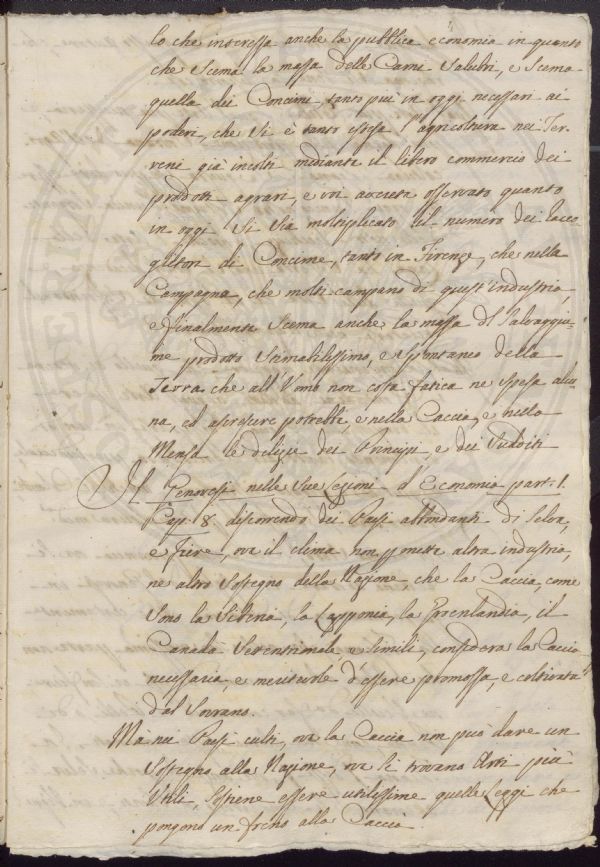 lo che interessa anche la pubblica economia in quanto
che Scema la massa delle Carni Salubri, e Scema
quella dei Concimi, tanto più in oggi necessari ai
poderi, che Si è tant' estesa l'agricoltura nei Ter-
reni già incolti mediante il libero commercio dei
prodotti agrari, e voi avrete osservato quanto
in oggi Si Sia moltiplicato il numero dei Racco-
glitori di Concime, tanto in Firenze, che nella
Campagna, che molti campano di quest'industria,
e finalmente Scema anche la massa del Salvaggiu-
me prodotto Stimabilissimo, e Spontaneo della
Terra che all'Uomo non costa fatica ne Spesa alcu-
na, ed accrescere potrebbe, e nella Caccia, e nella
Mensa le delizie dei Principi, e dei Sudditi
Il Genovesi nelle Sue Lezioni d'Economia part. 1.
Cap. 8. discorrendo dei Paesi abbondanti di Selve,
e Fiere, ove il clima non permette altra industria,
ne altro Sostegno della Nazione, che la Caccia, come
Sono la Siberia, la Lapponia, la Groenlandia, il
Canadà Settentrionale e Simili, considera la Caccia
necessaria, e meritevole d'essere promossa, e coltivata
dal Sovrano.
Ma nei Paesi culti, ove la Caccia non può dare un
Sostegno alla Nazione, ove Si trovano Arti più
Utili, Sostiene essere utilissime quelle Leggi che
pongono un freno alla Caccia.